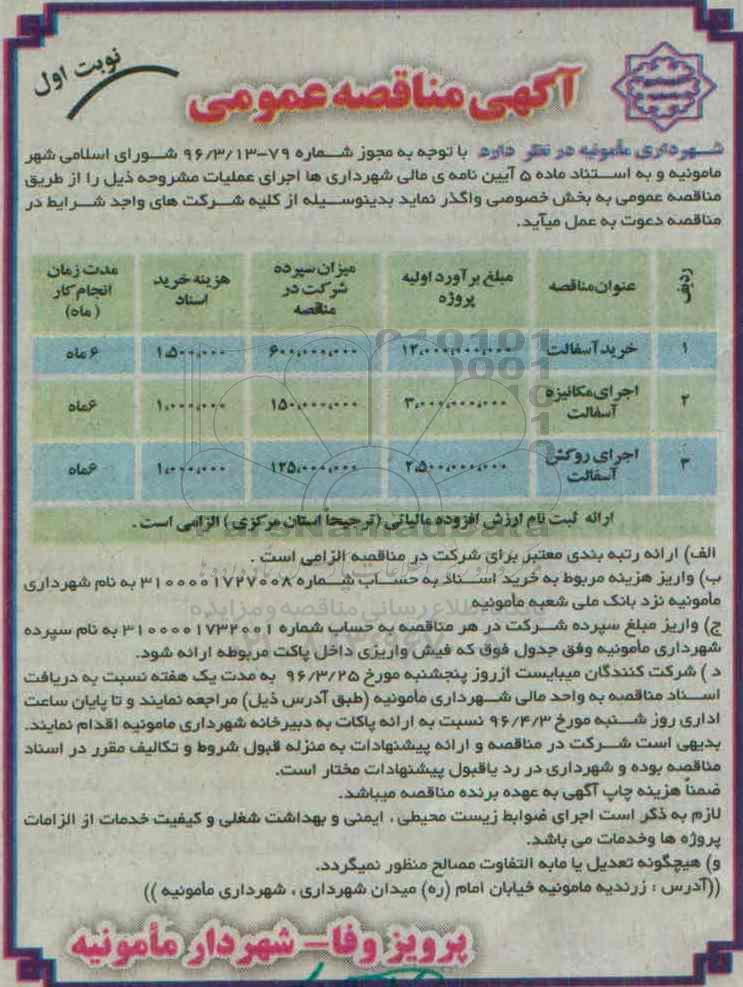 نوبت اول
آگهی مناقصه عمومی
شهرداری مأمونیه در نظر دارد با توجه به مجوز شماره ۷۹-۹۶/۳/۱۳ شورای اسلامی شهر
مامونیه و به استناد ماده ۵ آیین نامه ی مالی شهرداری ها اجرای عملیات مشروحه ذیل را از طریق
مناقصه عمومی به بخش خصوصی واگذر نماید بدینوسیله از کلیه شرکت های واجد شرایط در
مناقصه دعوت به عمل میآید.
ردیف عنوان مناقصه مبلغ برآورد اولیه پروژه میزان سپرده شرکت در مناقصه هزینه خرید اسناد مدت زمان انجام کار (ماه)
۱ خرید آسفالت ۱۲،۰۰۰،۰۰۰،۰۰۰ ۶۰۰،۰۰۰،۰۰۰ ۱،۵۰۰،۰۰۰ ۶ ماه
۲ اجرای مکانیزه آسفالت ۳،۰۰۰،۰۰۰،۰۰۰ ۱۵۰،۰۰۰،۰۰۰ ۱،۰۰۰،۰۰۰ ۶ماه
۳ اجرای روکش آسفالت ۲،۵۰۰،۰۰۰،۰۰۰ ۱۲۵،۰۰۰،۰۰۰ ۱،۰۰۰،۰۰۰ ۶ماه
ارائه ثبت نام ارزش افزوده مالیاتی (ترجیحاً استان مرکزی) الزامی است.
الف) ارائه رتبه بندی معتبر برای شرکت در مناقصه الزامی است.
ب) واریز هزینه مربوط به خرید اسناد به حساب شماره ۳۱۰۰۰۰۱۷۲۷۰۰۸ به نام شهرداری
مأمونیه نزد بانک ملی شعبه مأمونیه
ج) واریز مبلغ سپرده شرکت در هر مناقصه به حساب شماره ۳۱۰۰۰۰۱۷۳۲۰۰۱ به نام سپرده
شهرداری مأمونیه وفق جدول فوق که فیش واریزی داخل پاکت مربوطه ارائه شود.
د) شرکت کنندگان میبایست ازروز پنجشنبه مورخ ۹۶/۳/۲۵ به مدت یک هفته نسبت به دریافت
اسناد مناقصه به واحد مالی شهرداری مأمونیه (طبق آدرس ذیل) مراجعه نمایند و تا پایان ساعت
اداری روز شنبه مورخ ۹۶/۴/۳ نسبت به ارائه پاکات به دبیرخانه شهرداری مامونیه اقدام نمایند.
بدیهی است شرکت در مناقصه و ارائه پیشنهادات به منزله قبول شروط و تکالیف مقرر در اسناد
مناقصه بوده و شهرداری در رد یاقبول پیشنهادات مختار است.
ضمناً هزینه چاپ آگهی به عهده برنده مناقصه میباشد.
لازم به ذکر است اجرای ضوابط زیست محیطی، ایمنی و بهداشت شغلی و کیفیت خدمات از الزامات
پروژه ها وخدمات می باشد.
و) هیچگونه تعدیل یا مابه التفاوت مصالح منظور نمیگردد.
((آدرس : زرندیه مامونیه خیابان امام (ره) میدان شهرداری، شهرداری مأمونیه ))
پرویز وفا- شهردار مأمونیه